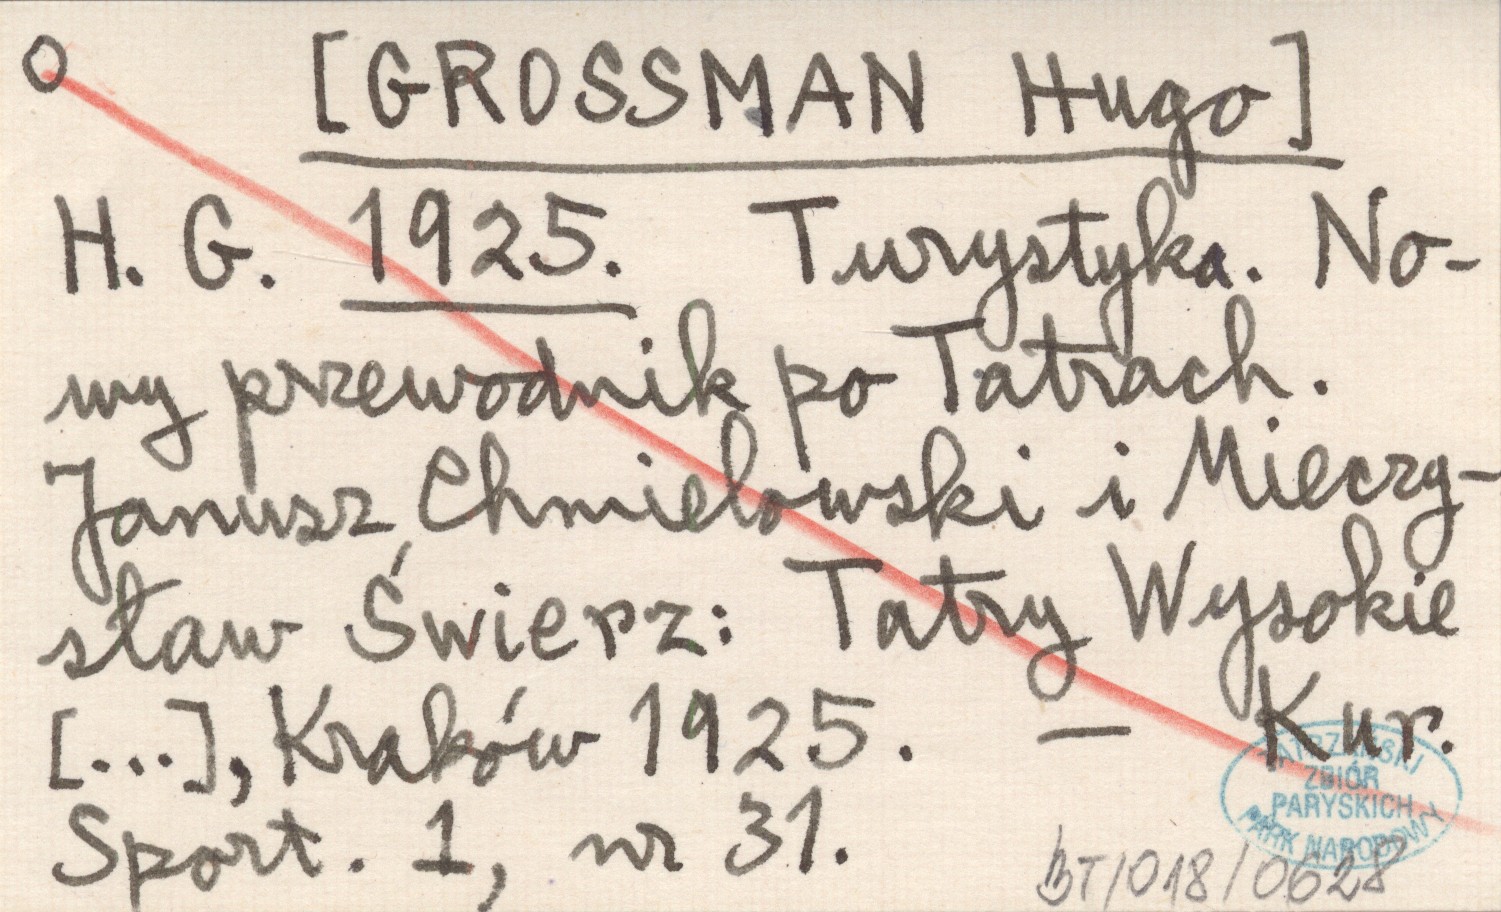 [GROSSMAN Hugo]
H. G. 1925. Turystyka. No-
wy przewodnik po Tatrach.
Janusz Chmielowski i Mieczy-
sław Świerz: Tatry Wysokie
[...], Kraków 1925. — Kur.
Sport. 1, nr 31.
TATRZAŃSKI
ZBIÓR
PARYSKICH
PARK NARODOWY
BT/018/0628